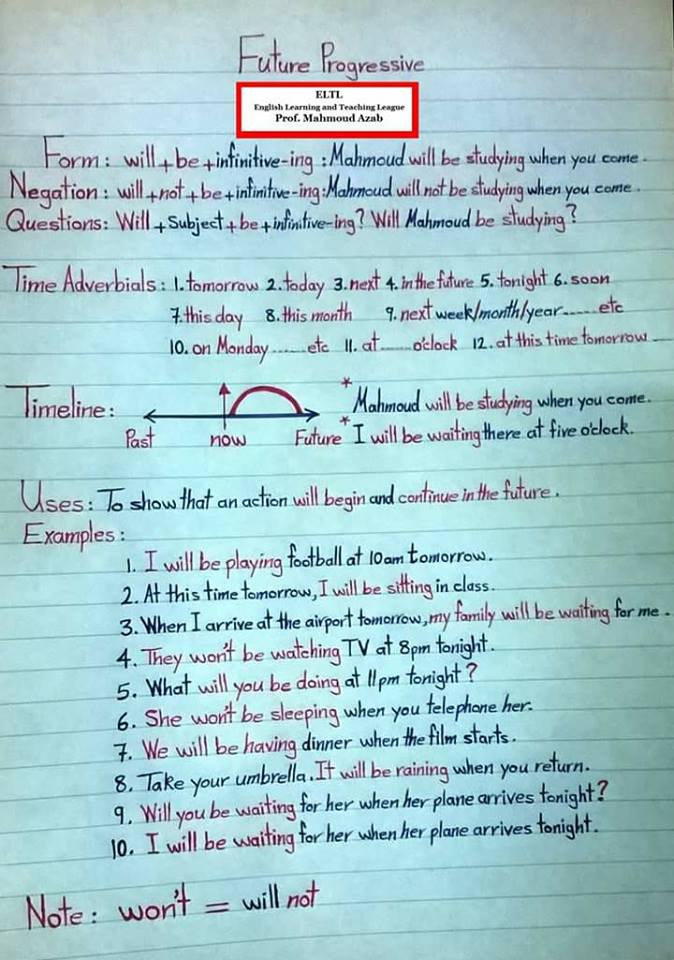 Future Progressive
ELTL
English Learning and Teaching League
Prof. Mahmoud Azab
Form: will+be+infinitive-ing: Mahmoud will be studying when you come.
Negation: will+not+be+infinitive-ing: Mahmoud will not be studying when you come.
Questions: Will+Subject+be+infinitive-ing? Will Mahmoud be studying?
Time Adverbials: 1. tomorrow 2. today 3. next 4. in the future 5. tonight 6. soon
7. this day 8. this month 9. next week/month/year...... etc
10. on Monday ...... etc 11. at ...... o'clock 12. at this time tomorrow ...
Timeline:
Past now Future
* Mahmoud will be studying when you come.
* I will be waiting there at five o'clock.
Uses: To show that an action will begin and continue in the future.
Examples:
1. I will be playing football at 10am tomorrow.
2. At this time tomorrow, I will be sitting in class.
3. When I arrive at the airport tomorrow, my family will be waiting for me.
4. They won't be watching TV at 8pm tonight.
5. What will you be doing at 11pm tonight?
6. She won't be sleeping when you telephone her.
7. We will be having dinner when the film starts.
8. Take your umbrella. It will be raining when you return.
9. Will you be waiting for her when her plane arrives tonight?
10. I will be waiting for her when her plane arrives tonight.
Note: won't = will not